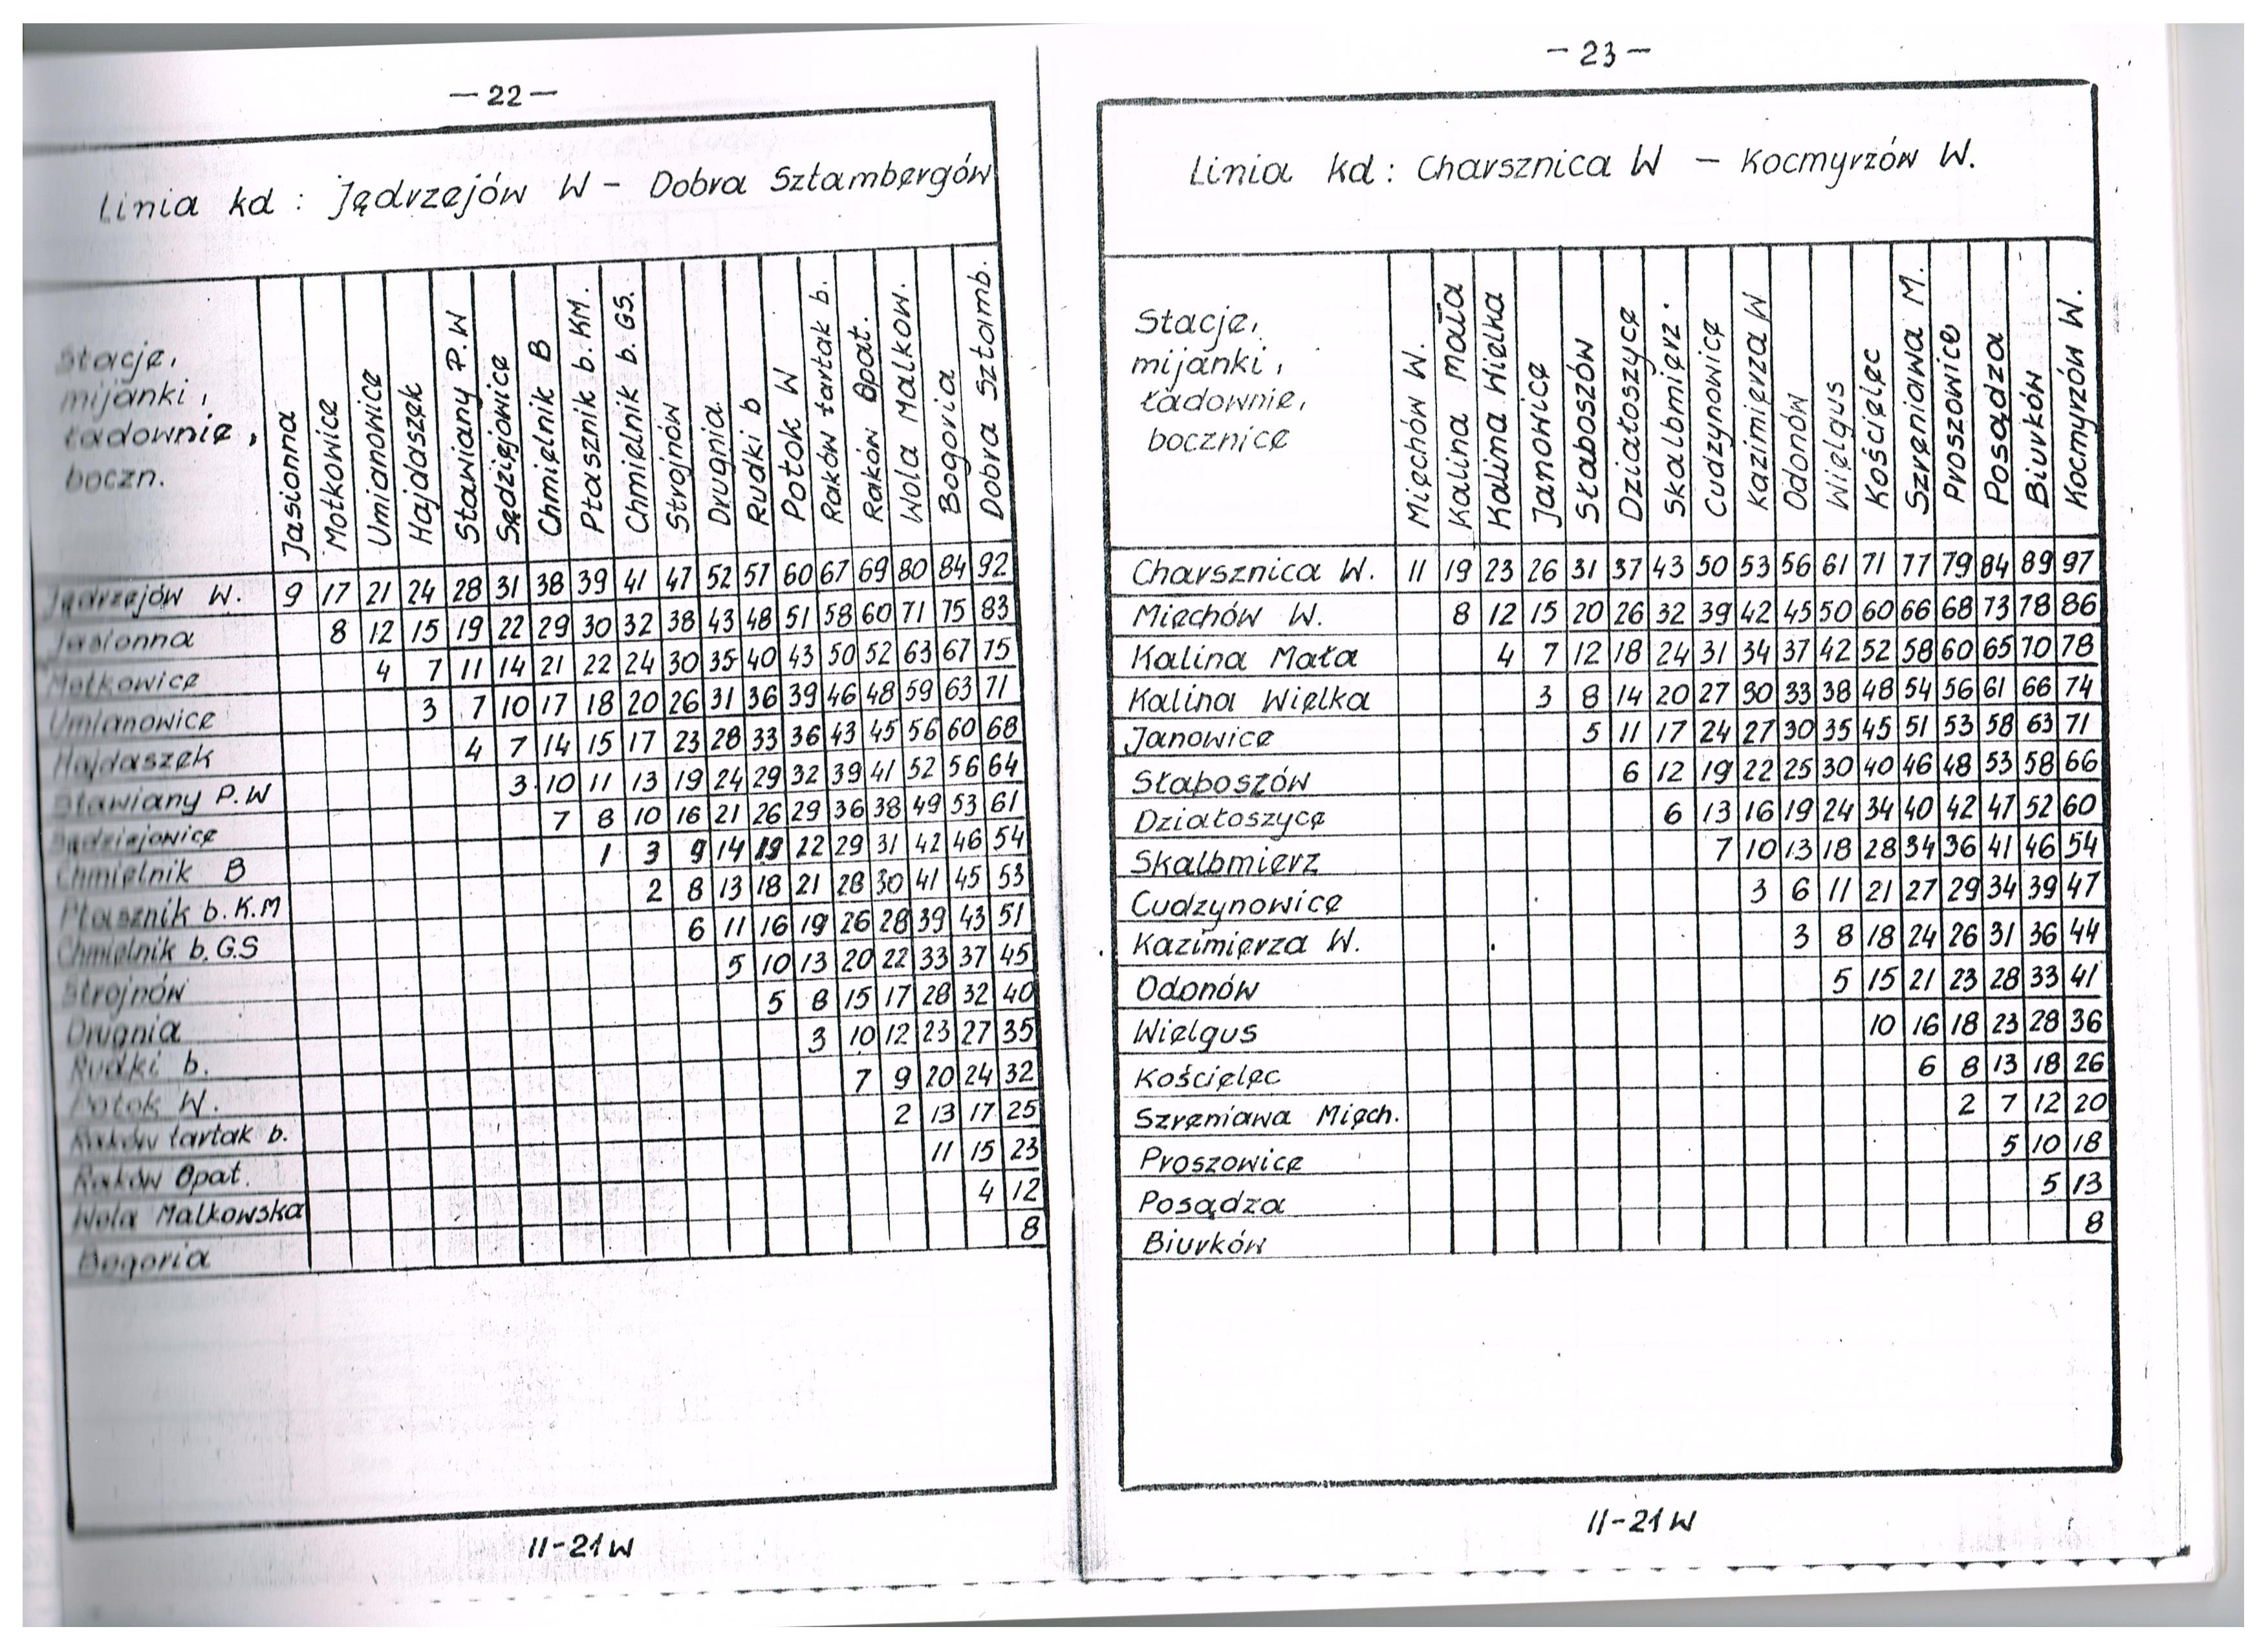 — 22 —
Linia kd : Jędrzejów W – Dobra Sztambergów
Stacje,
mijanki,
ładownie,
boczn.
Jasionna
Motkowice
Umianowice
Hajdaszek
Stawiany P.W
Sędziejowice
Chmielnik B
Ptasznik b. KM.
Chmielnik b. GS.
Strojnów
Drugnia
Rudki b
Potok W
Raków tartak b.
Raków Opat.
Wola Malkow.
Bogoria
Dobra Sztamb.
Jędrzejów W. 9 17 21 24 28 31 38 39 41 47 52 57 60 67 69 80 84 92
Jasionna 8 12 15 19 22 29 30 32 38 43 48 51 58 60 71 75 83
Motkowice 4 7 11 14 21 22 24 30 35 40 43 50 52 63 67 75
Umianowice 3 7 10 17 18 20 26 31 36 39 46 48 59 63 71
Hajdaszek 4 7 14 15 17 23 28 33 36 43 45 56 60 68
Stawiany P.W 3 10 11 13 19 24 29 32 39 41 52 56 64
Sędziejowice 7 8 10 16 21 26 29 36 38 49 53 61
Chmielnik B 1 3 9 14 19 22 29 31 42 46 54
Ptasznik b. K.M 2 8 13 18 21 28 30 41 45 53
Chmielnik b. G.S 6 11 16 19 26 28 39 43 51
Strojnów 5 10 13 20 22 33 37 45
Drugnia 5 8 15 17 28 32 40
Rudki b. 3 10 12 23 27 35
Potok W. 7 9 20 24 32
Raków tartak b. 2 13 17 25
Raków Opat. 11 15 23
Wola Malkowska 4 12
Bogoria 8
II-21W
— 23 —
Linia kd : Charsznica W – Kocmyrzów W.
Stacje,
mijanki,
ładownie,
bocznice
Miechów W.
Kalina Mała
Kalina Wielka
Janowice
Słaboszów
Działoszyce
Skalbmierz.
Cudzynowice
Kazimierza W
Odonów
Wielgus
Kościelec
Szreniawa M.
Proszowice
Posądza
Biurków
Kocmyrzów W.
Charsznica W. 11 19 23 26 31 37 43 50 53 56 61 71 77 79 84 89 97
Miechów W. 8 12 15 20 26 32 39 42 45 50 60 66 68 73 78 86
Kalina Mała 4 7 12 18 24 31 34 37 42 52 58 60 65 70 78
Kalina Wielka 3 8 14 20 27 30 33 38 48 54 56 61 66 74
Janowice 5 11 17 24 27 30 35 45 51 53 58 63 71
Słaboszów 6 12 19 22 25 30 40 46 48 53 58 66
Działoszyce 6 13 16 19 24 34 40 42 47 52 60
Skalbmierz 7 10 13 18 28 34 36 41 46 54
Cudzynowice 3 6 11 21 27 29 34 39 47
Kazimierza W. 3 8 18 24 26 31 36 44
Odonów 5 15 21 23 28 33 41
Wielgus 10 16 18 23 28 36
Kościelec 6 8 13 18 26
Szreniawa Miech. 2 7 12 20
Proszowice 5 10 18
Posądza 5 13
Biurków 8
II-21W